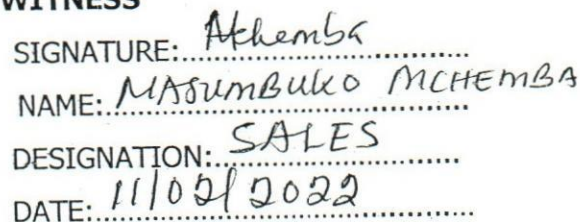 WITNESS
SIGNATURE: Mchemba
NAME: MASUMBUKO MCHEMBA
DESIGNATION: SALES
DATE: 11/02/2022